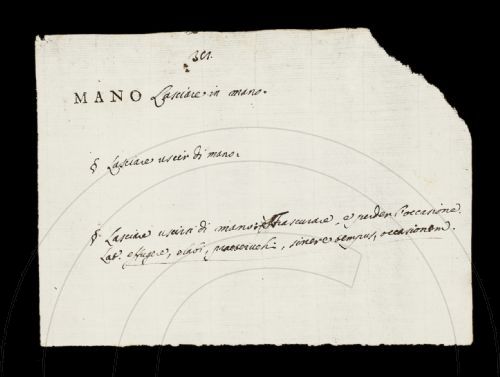 351.
MANO Lasciare in mano.
§ Lasciare uscir di mano.
§ Lasciare uscirsi di mano: Trascurare, e perder l'occasione.
Lat. effugere, elabi, praetervehi, sinere tempus, occasionem.